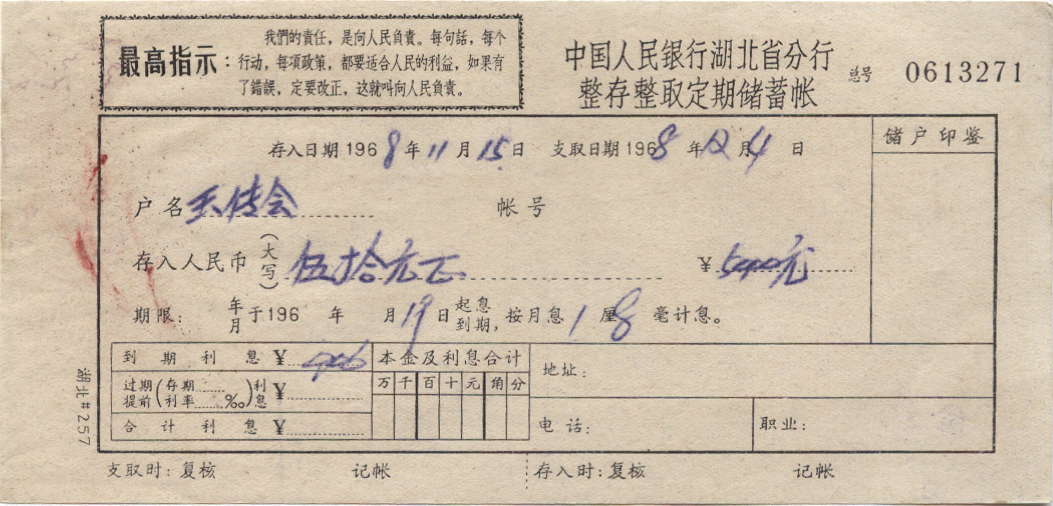 最高指示：
我們的責任，是向人民負責。每句話，每个
行动，每項政策，都要适合人民的利益，如果有
了錯誤，定要改正，这就叫向人民負責。
中国人民银行湖北省分行
整存整取定期储蓄帐
总号 0613271
存入日期1968年11月15日 支取日期1968年12月4日
储户印鉴
户名 传会 帐号
存入人民币（大写）伍拾元正 ¥ 元
期限：年月于196 年 月19日起息到期，按月息1厘8毫计息。
到期利息¥
本金及利息合计
万 千 百 十 元 角 分
过期提前（存期 利率 ‰）利息¥
合计利息¥
地址：
电话：
职业：
湖北#257
支取时：复核 记帐 存入时：复核 记帐